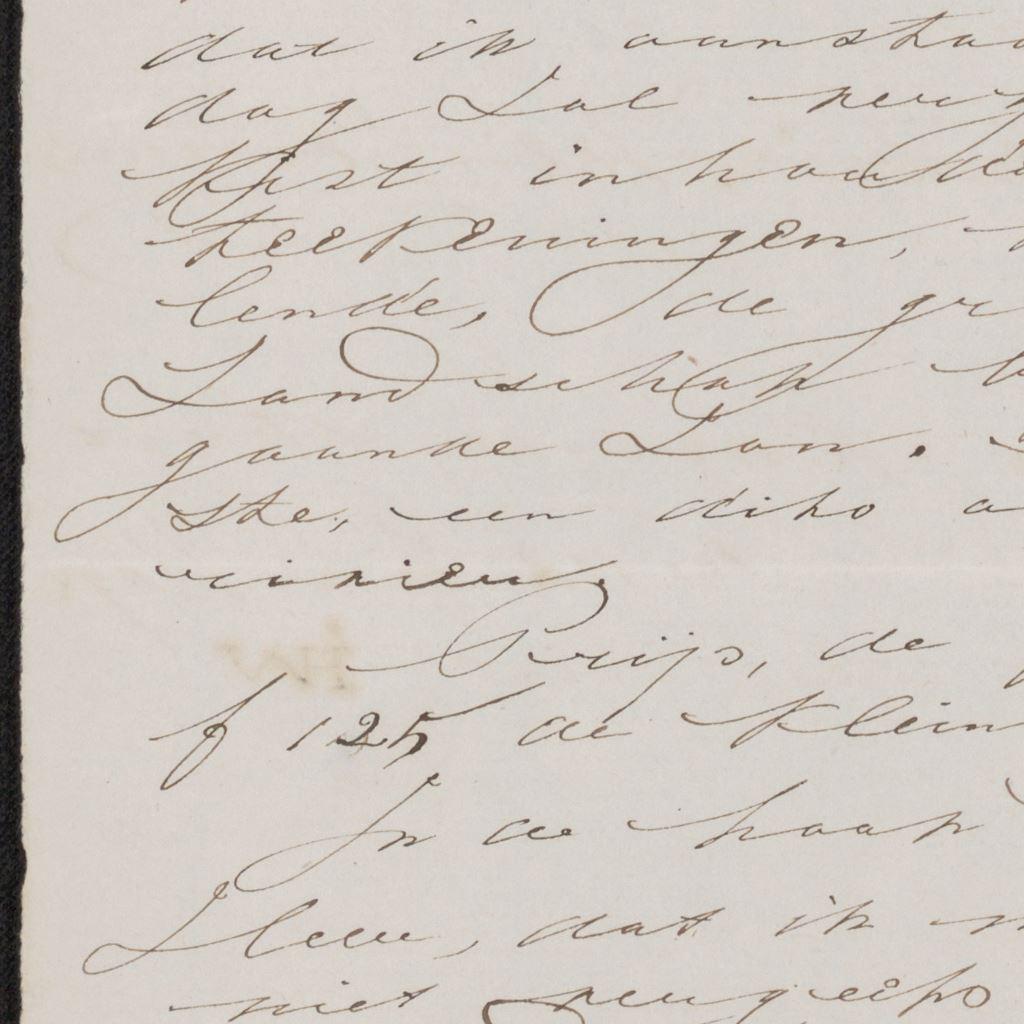 dat ik aansta
dag Zal
Kist inhou
teekeningen,
lende, de gr
Landschap
gaande Zon.
ste, een dito a

Prijs, de
f 125 de klein
In de haap
Lleeu, dat ik
niet